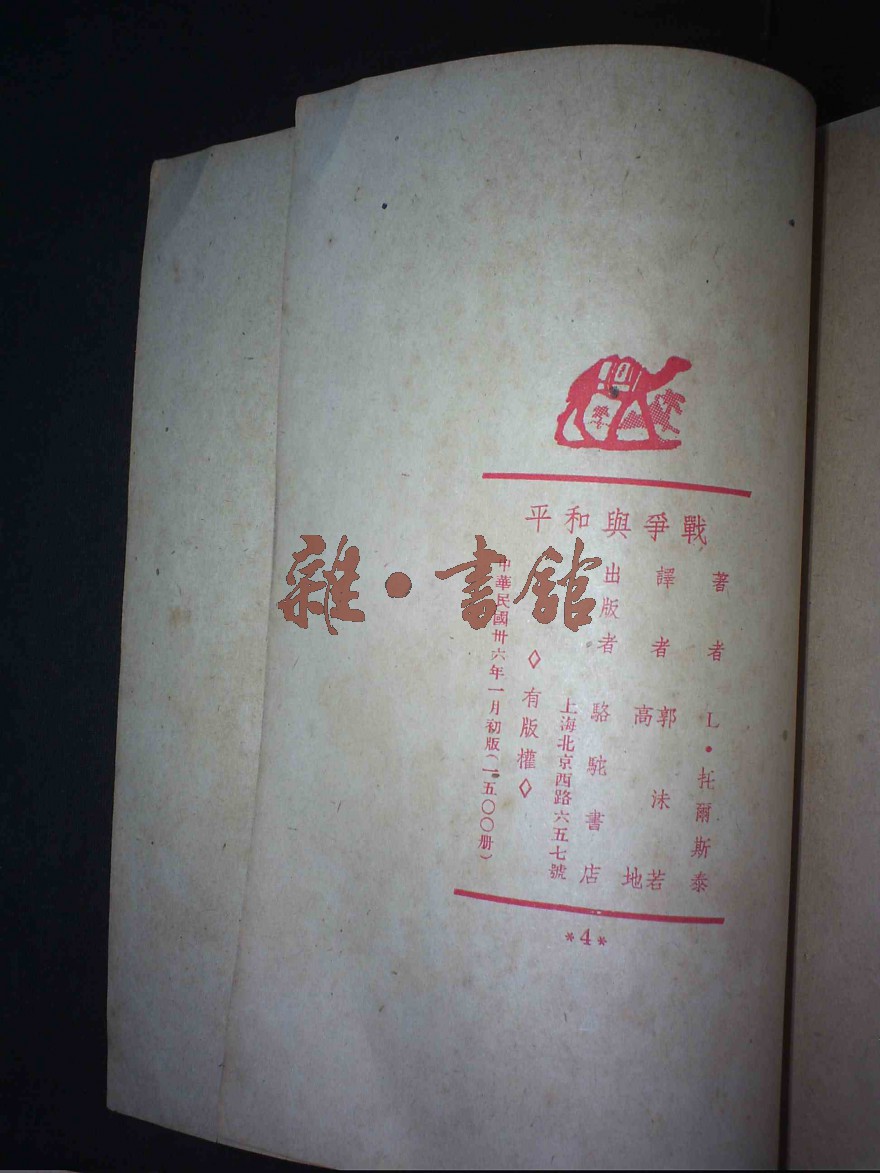 平和與爭戰
著者 L•托爾斯泰
譯者 郭沫若
高地
出版者 駱駝書店
上海北京西路六五七號
◇有版權◇
中華民國卅六年一月初版(一五〇〇册)
*4*
雜•書館